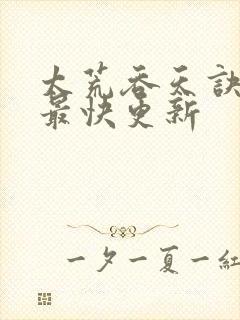 大荒吞天訣
最快更新
一夕一夏一紅